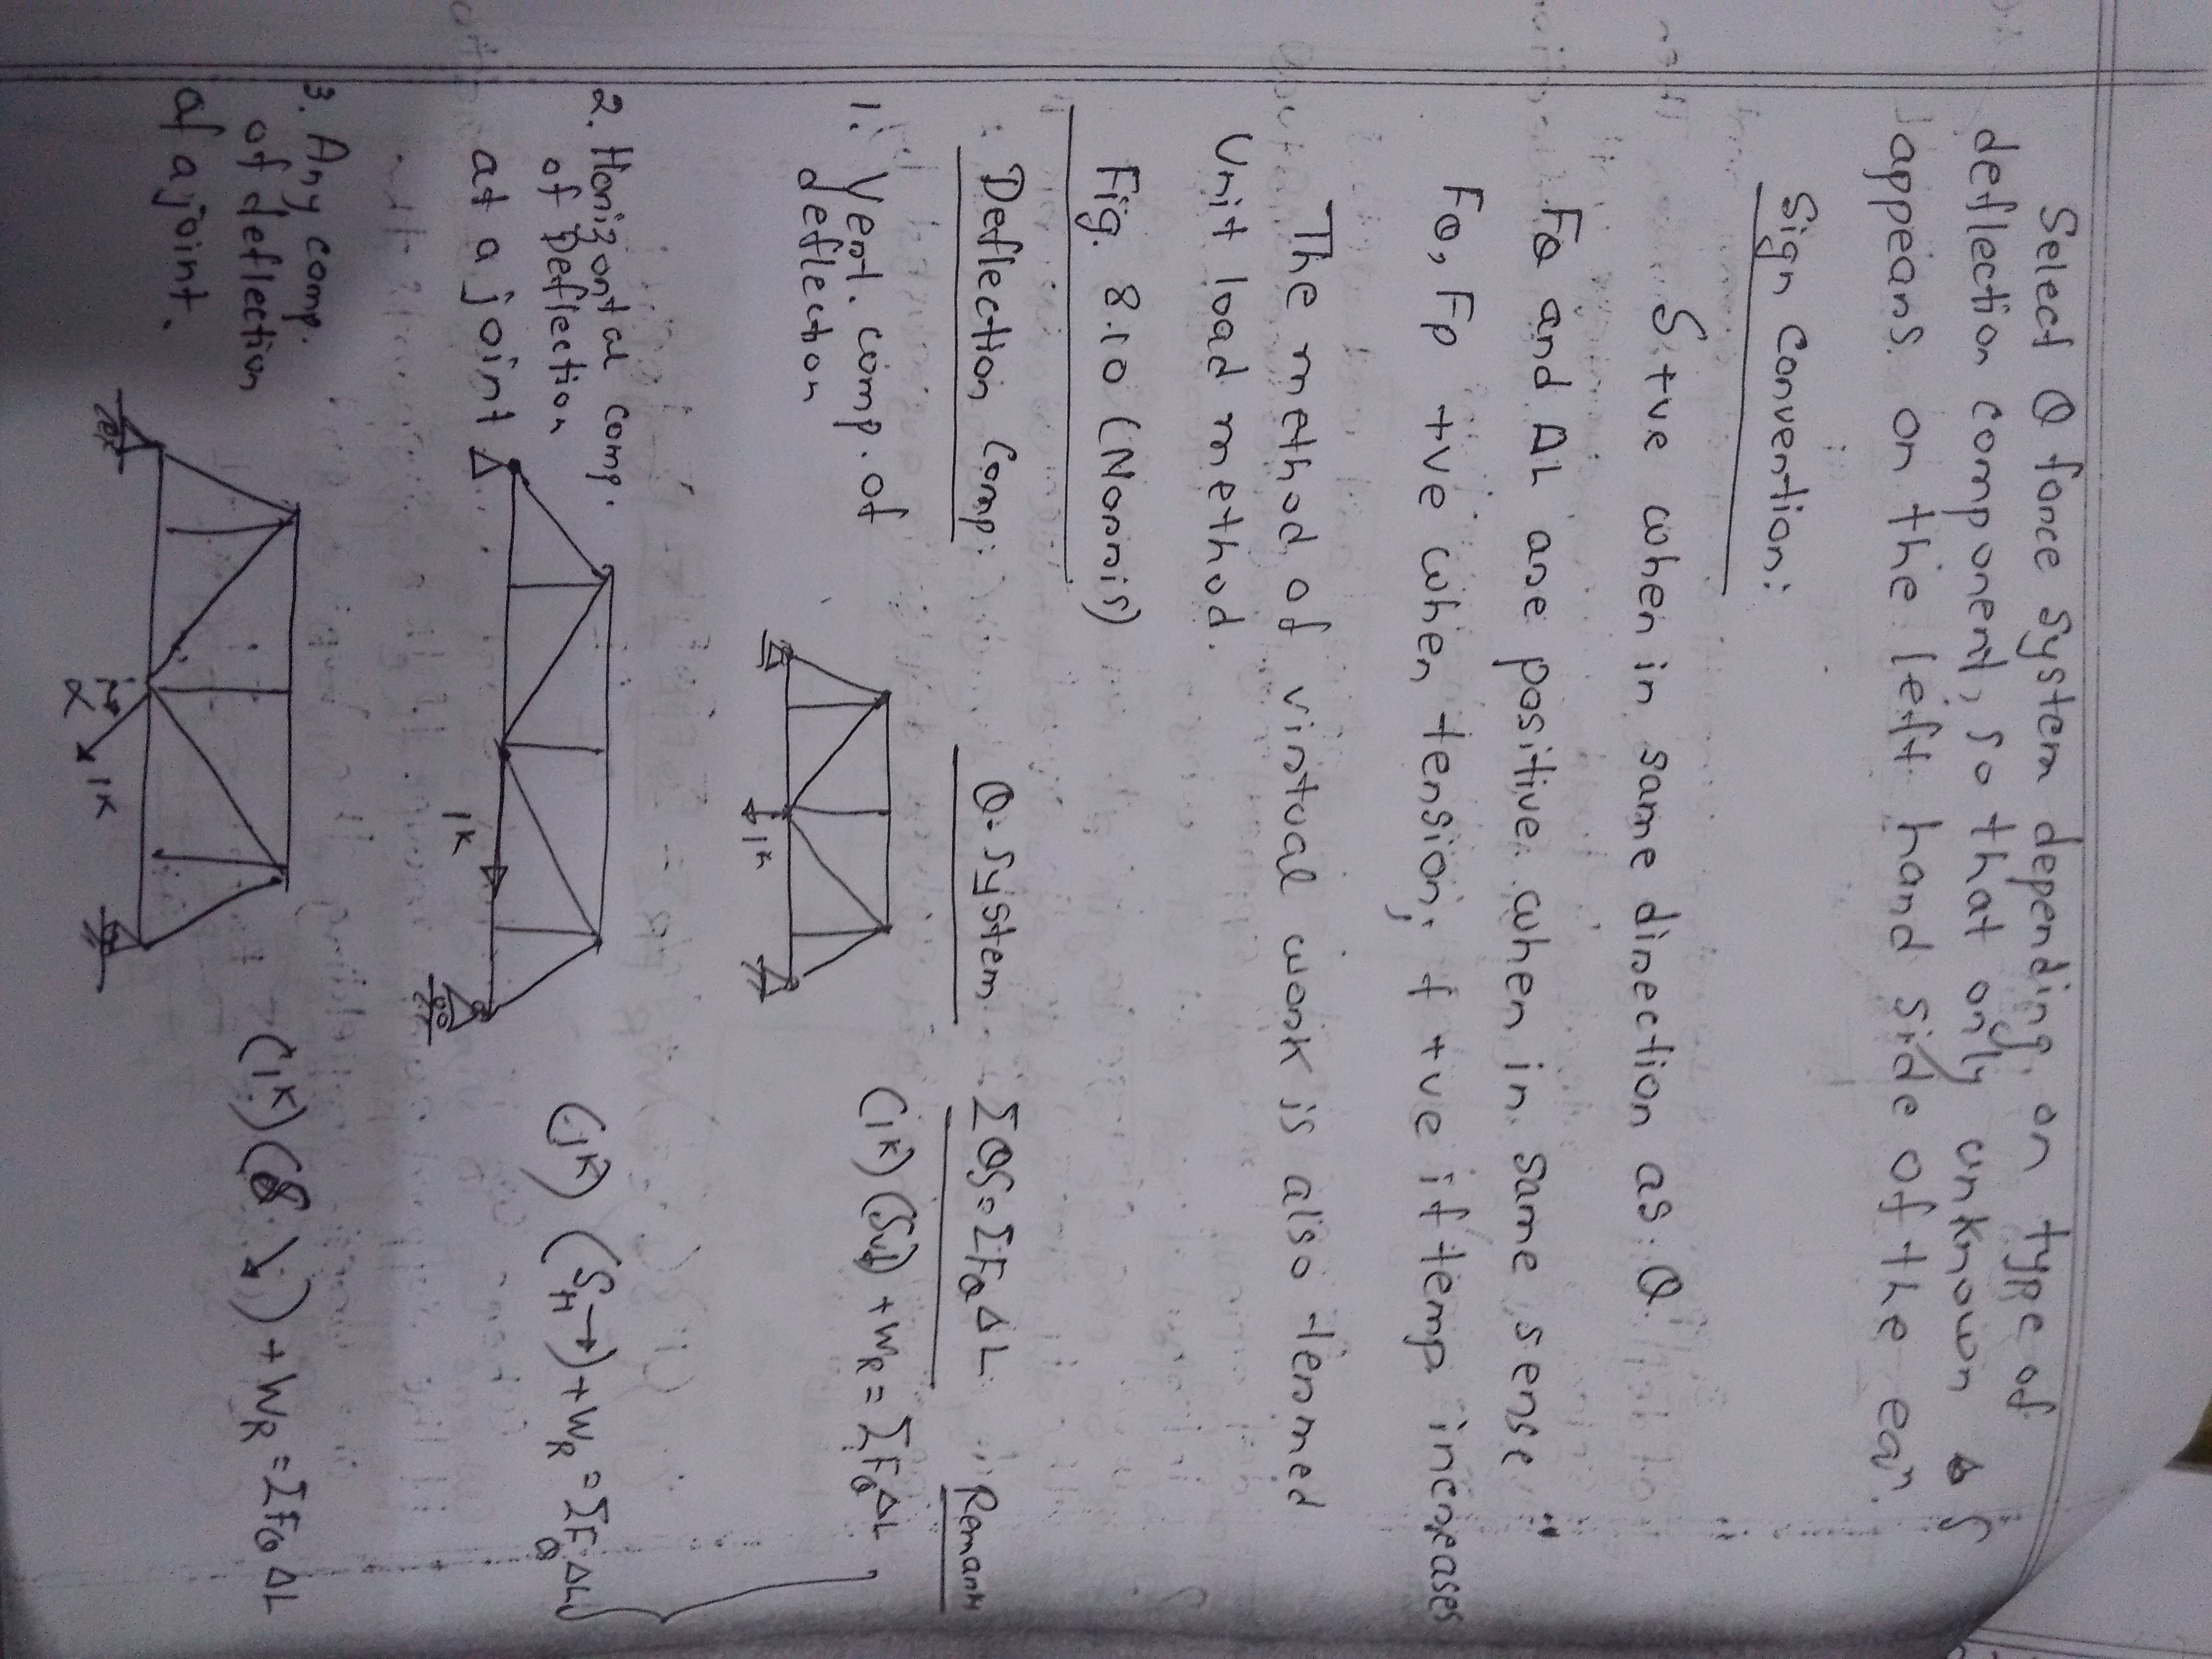 Select Q force system depending on type of
deflection component, so that only unknown δ
appears on the left hand side of the eqn.
Sign Convention:
δ +ve when in same direction as Q
FQ and ΔL are positive when in same sense
FQ, FP +ve when tension; t +ve if temp increases
The method of virtual work is also termed
Unit load method.
Fig. 8.10 (Norris)
Deflection Comp: Q-System ΣQδ=ΣFQΔL Remark
1. Vert. comp. of deflection
1K
(1K)(δv↓) + WR = ΣFQΔL
2. Horizontal comp.
of Deflection
at a joint
1K
(1K) (δH→) + WR = ΣFQΔL
3. Any comp.
of deflection
of a joint.
α
1K
(1K)(δ ↘) + WR = ΣFQ ΔL